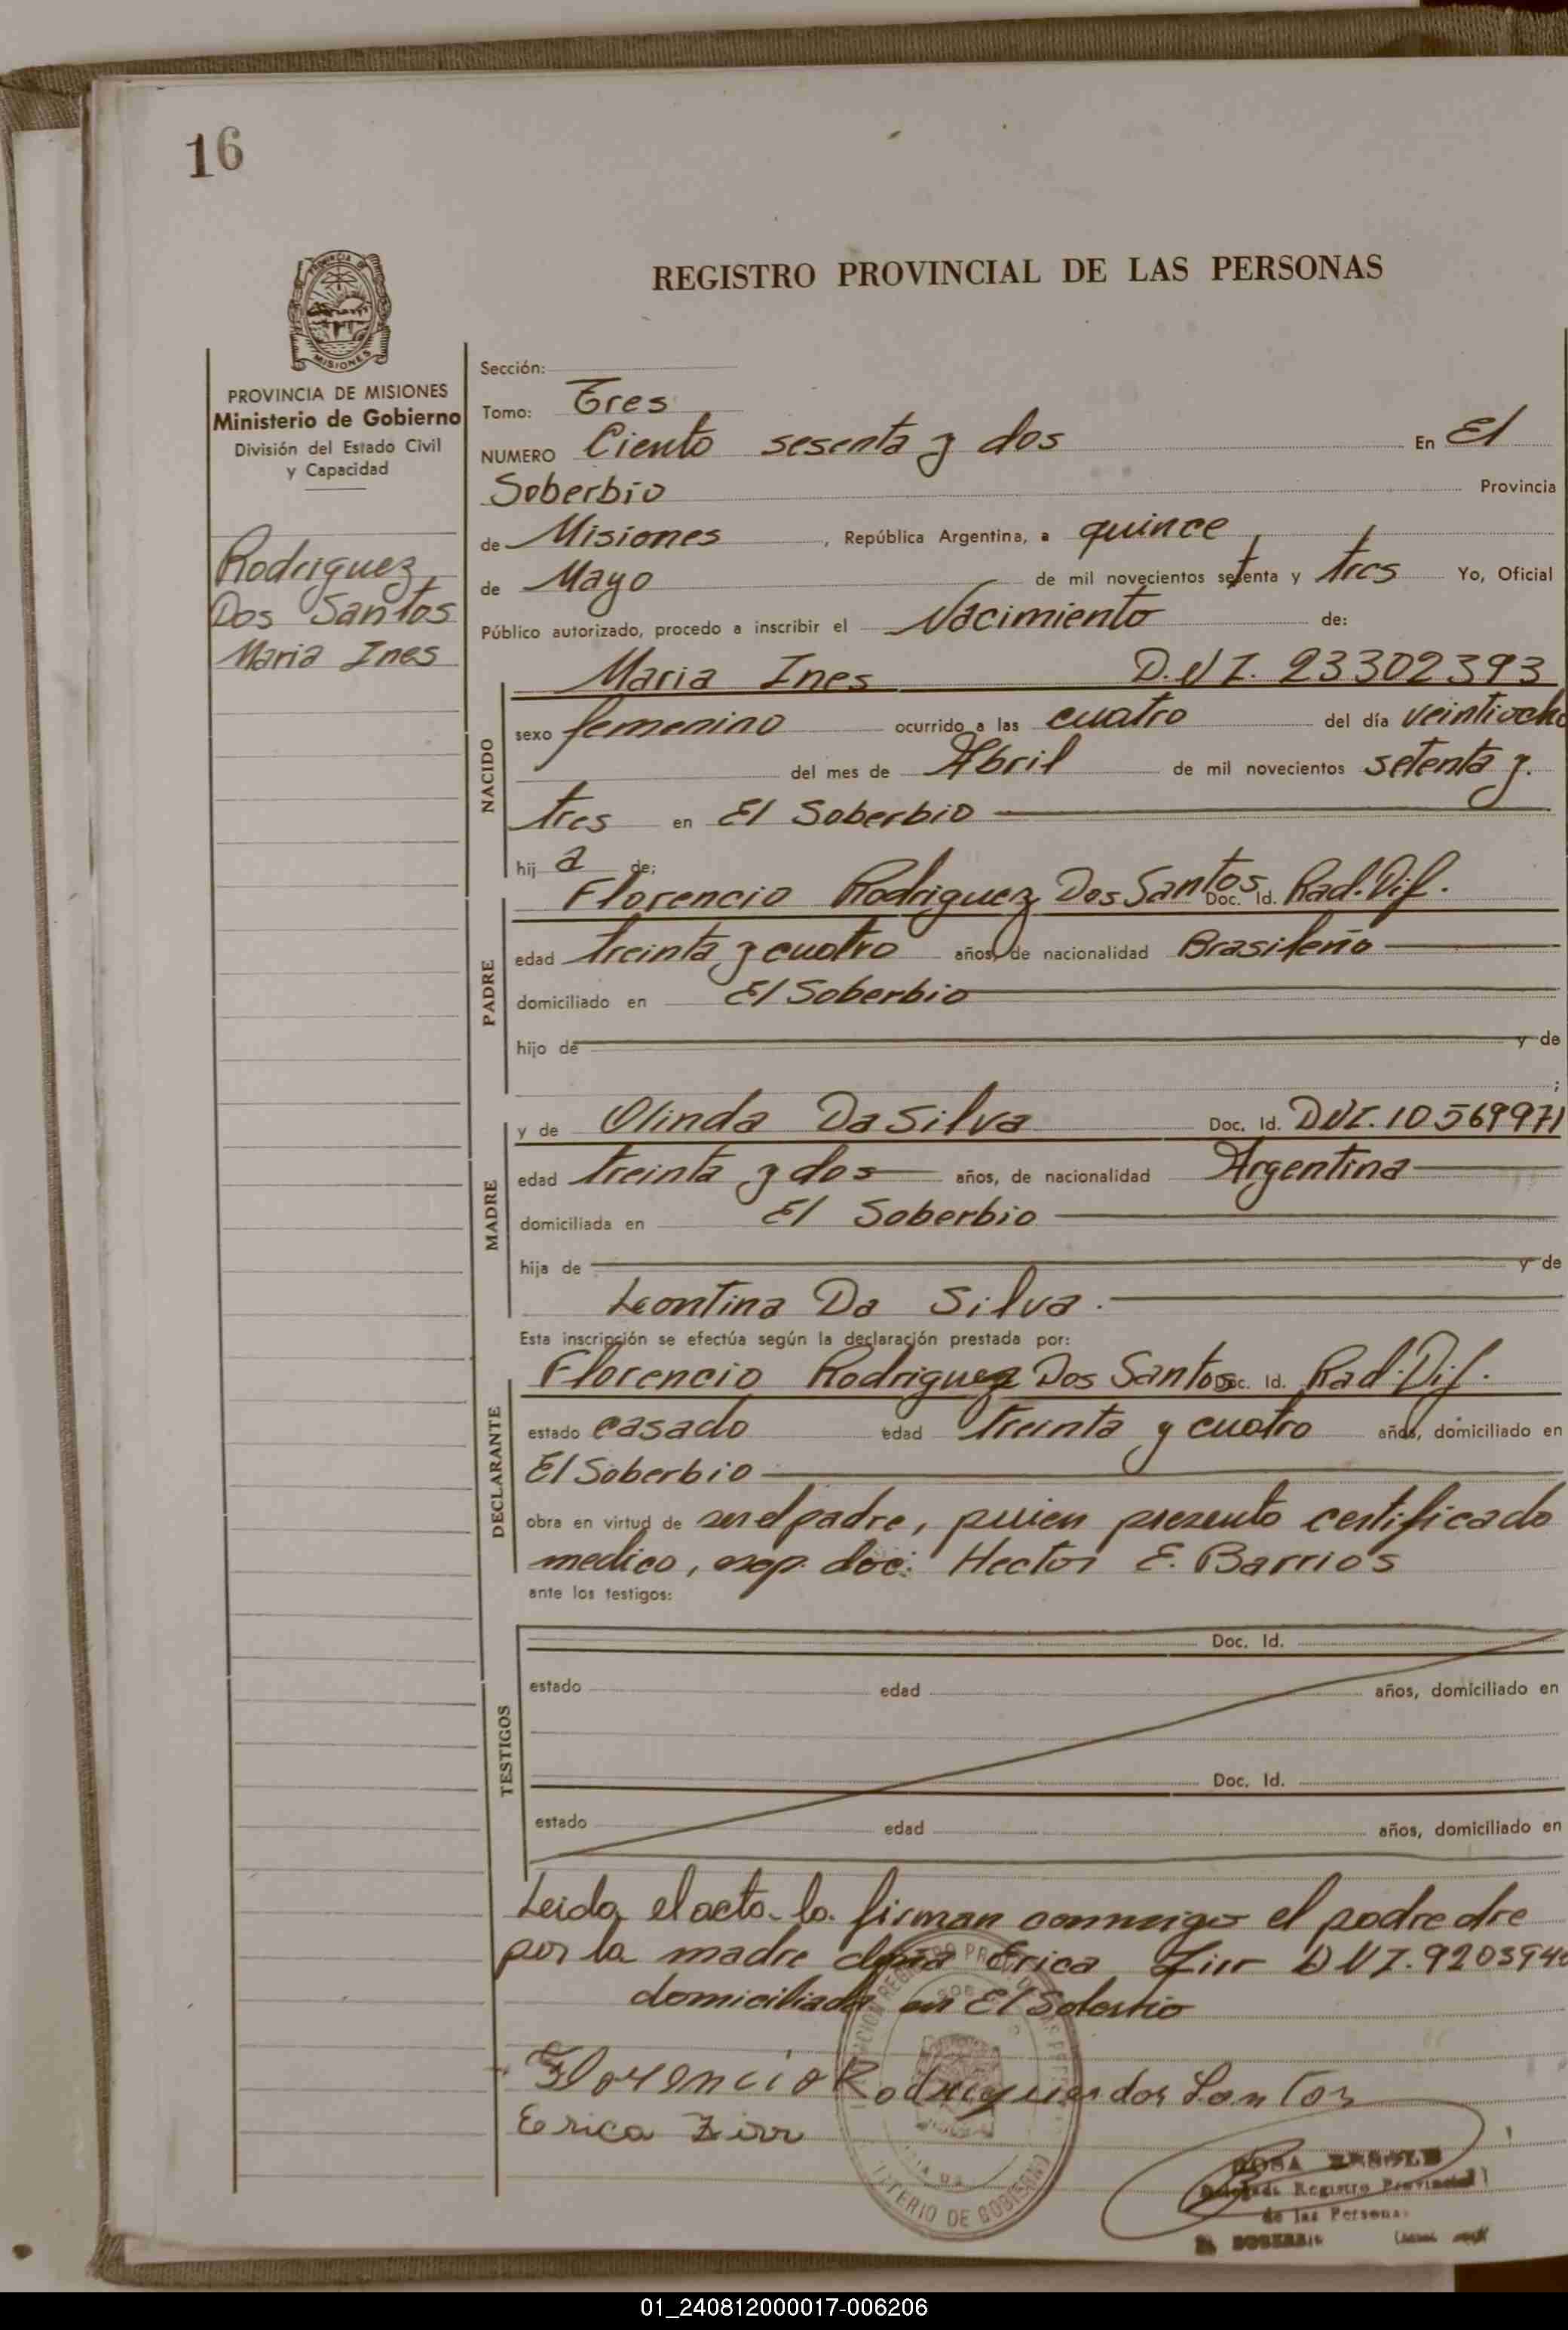 16
REGISTRO PROVINCIAL DE LAS PERSONAS
PROVINCIA DE
MISIONES
PROVINCIA DE MISIONES
Ministerio de Gobierno
División del Estado Civil
y Capacidad
Rodriguez
Dos Santos
Maria Ines
Sección:
Tomo: Tres
NUMERO Ciento sesenta y dos En El
Soberbio Provincia
de Misiones, República Argentina, a quince
de Mayo de mil novecientos setenta y tres Yo, Oficial
Público autorizado, procedo a inscribir el Nacimiento de:
NACIDO
Maria Ines D.N.I. 23302393
sexo femenino ocurrido a las cuatro del día veintiocho
del mes de Abril de mil novecientos setenta y
tres en El Soberbio
hij a de:
PADRE
Florencio Rodriguez Dos Santos Doc. Id. Rad. Dif.
edad treinta y cuatro años, de nacionalidad Brasileño
domiciliado en El Soberbio
hijo de y de
;
MADRE
y de Olinda Da Silva Doc. Id. DNI. 10569971
edad treinta y dos años, de nacionalidad Argentina
domiciliada en El Soberbio
hija de y de
Leontina Da Silva.
Esta inscripción se efectúa según la declaración prestada por:
DECLARANTE
Florencio Rodriguez Dos Santos Doc. Id. Rad. Dif.
estado casado edad treinta y cuatro años, domiciliado en
El Soberbio
obra en virtud de ser el padre, quien presento certificado
medico, exp. doc: Hector E. Barrios
ante los testigos:
TESTIGOS
Doc. Id.
estado edad años, domiciliado en
Doc. Id.
estado edad años, domiciliado en
Leida el acta la firman conmigo el padre
por la madre doña Erica Zirr DNI. 920394
domiciliada en El Soberbio
Florencio Rodriguez dos Santos
Erica Zirr
MINISTERIO DE GOBIERNO
ROSA
Delegada Registro Provincial
de las Personas
EL SOBERBIO
01_240812000017-006206